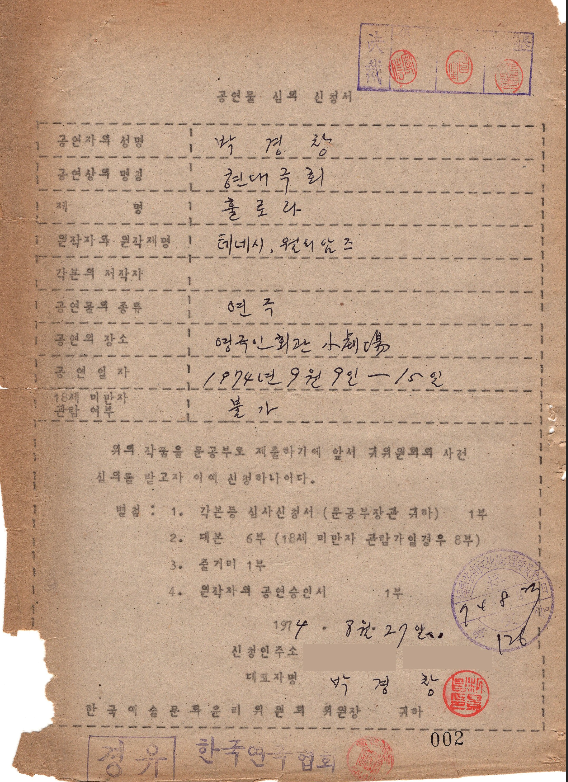 決裁
공연물 심의 신청서
공연자의 성명 박경창
공연상의 명칭 현대극회
제 명 훌로라
원작자와 원작제명 테네시, 윌리암즈
각본의 저작자
공연물의 종류 연극
공연의 장소 연극인회관 小劇場
공연일자 1974년 9월 9일 — 15일
18세 미만자
관람 여부 불가
위의 작품을 문공부로 제출하기에 앞서 귀위원회의 사전
심의를 받고자 이에 신청하나이다.
별첨 : 1. 각본등 심사신청서 (문공부장관 귀하) 1부
2. 대본 6부 (18세 미만자 관람가일경우 8부)
3. 줄거리 1부
4. 원작자의 공연승인서 1부
1974. 8월 27일
74 8
126
신청인주소
대표자명 박경창
한국예술문화윤리위원회 위원장 귀하
002
경유 한국연극협회